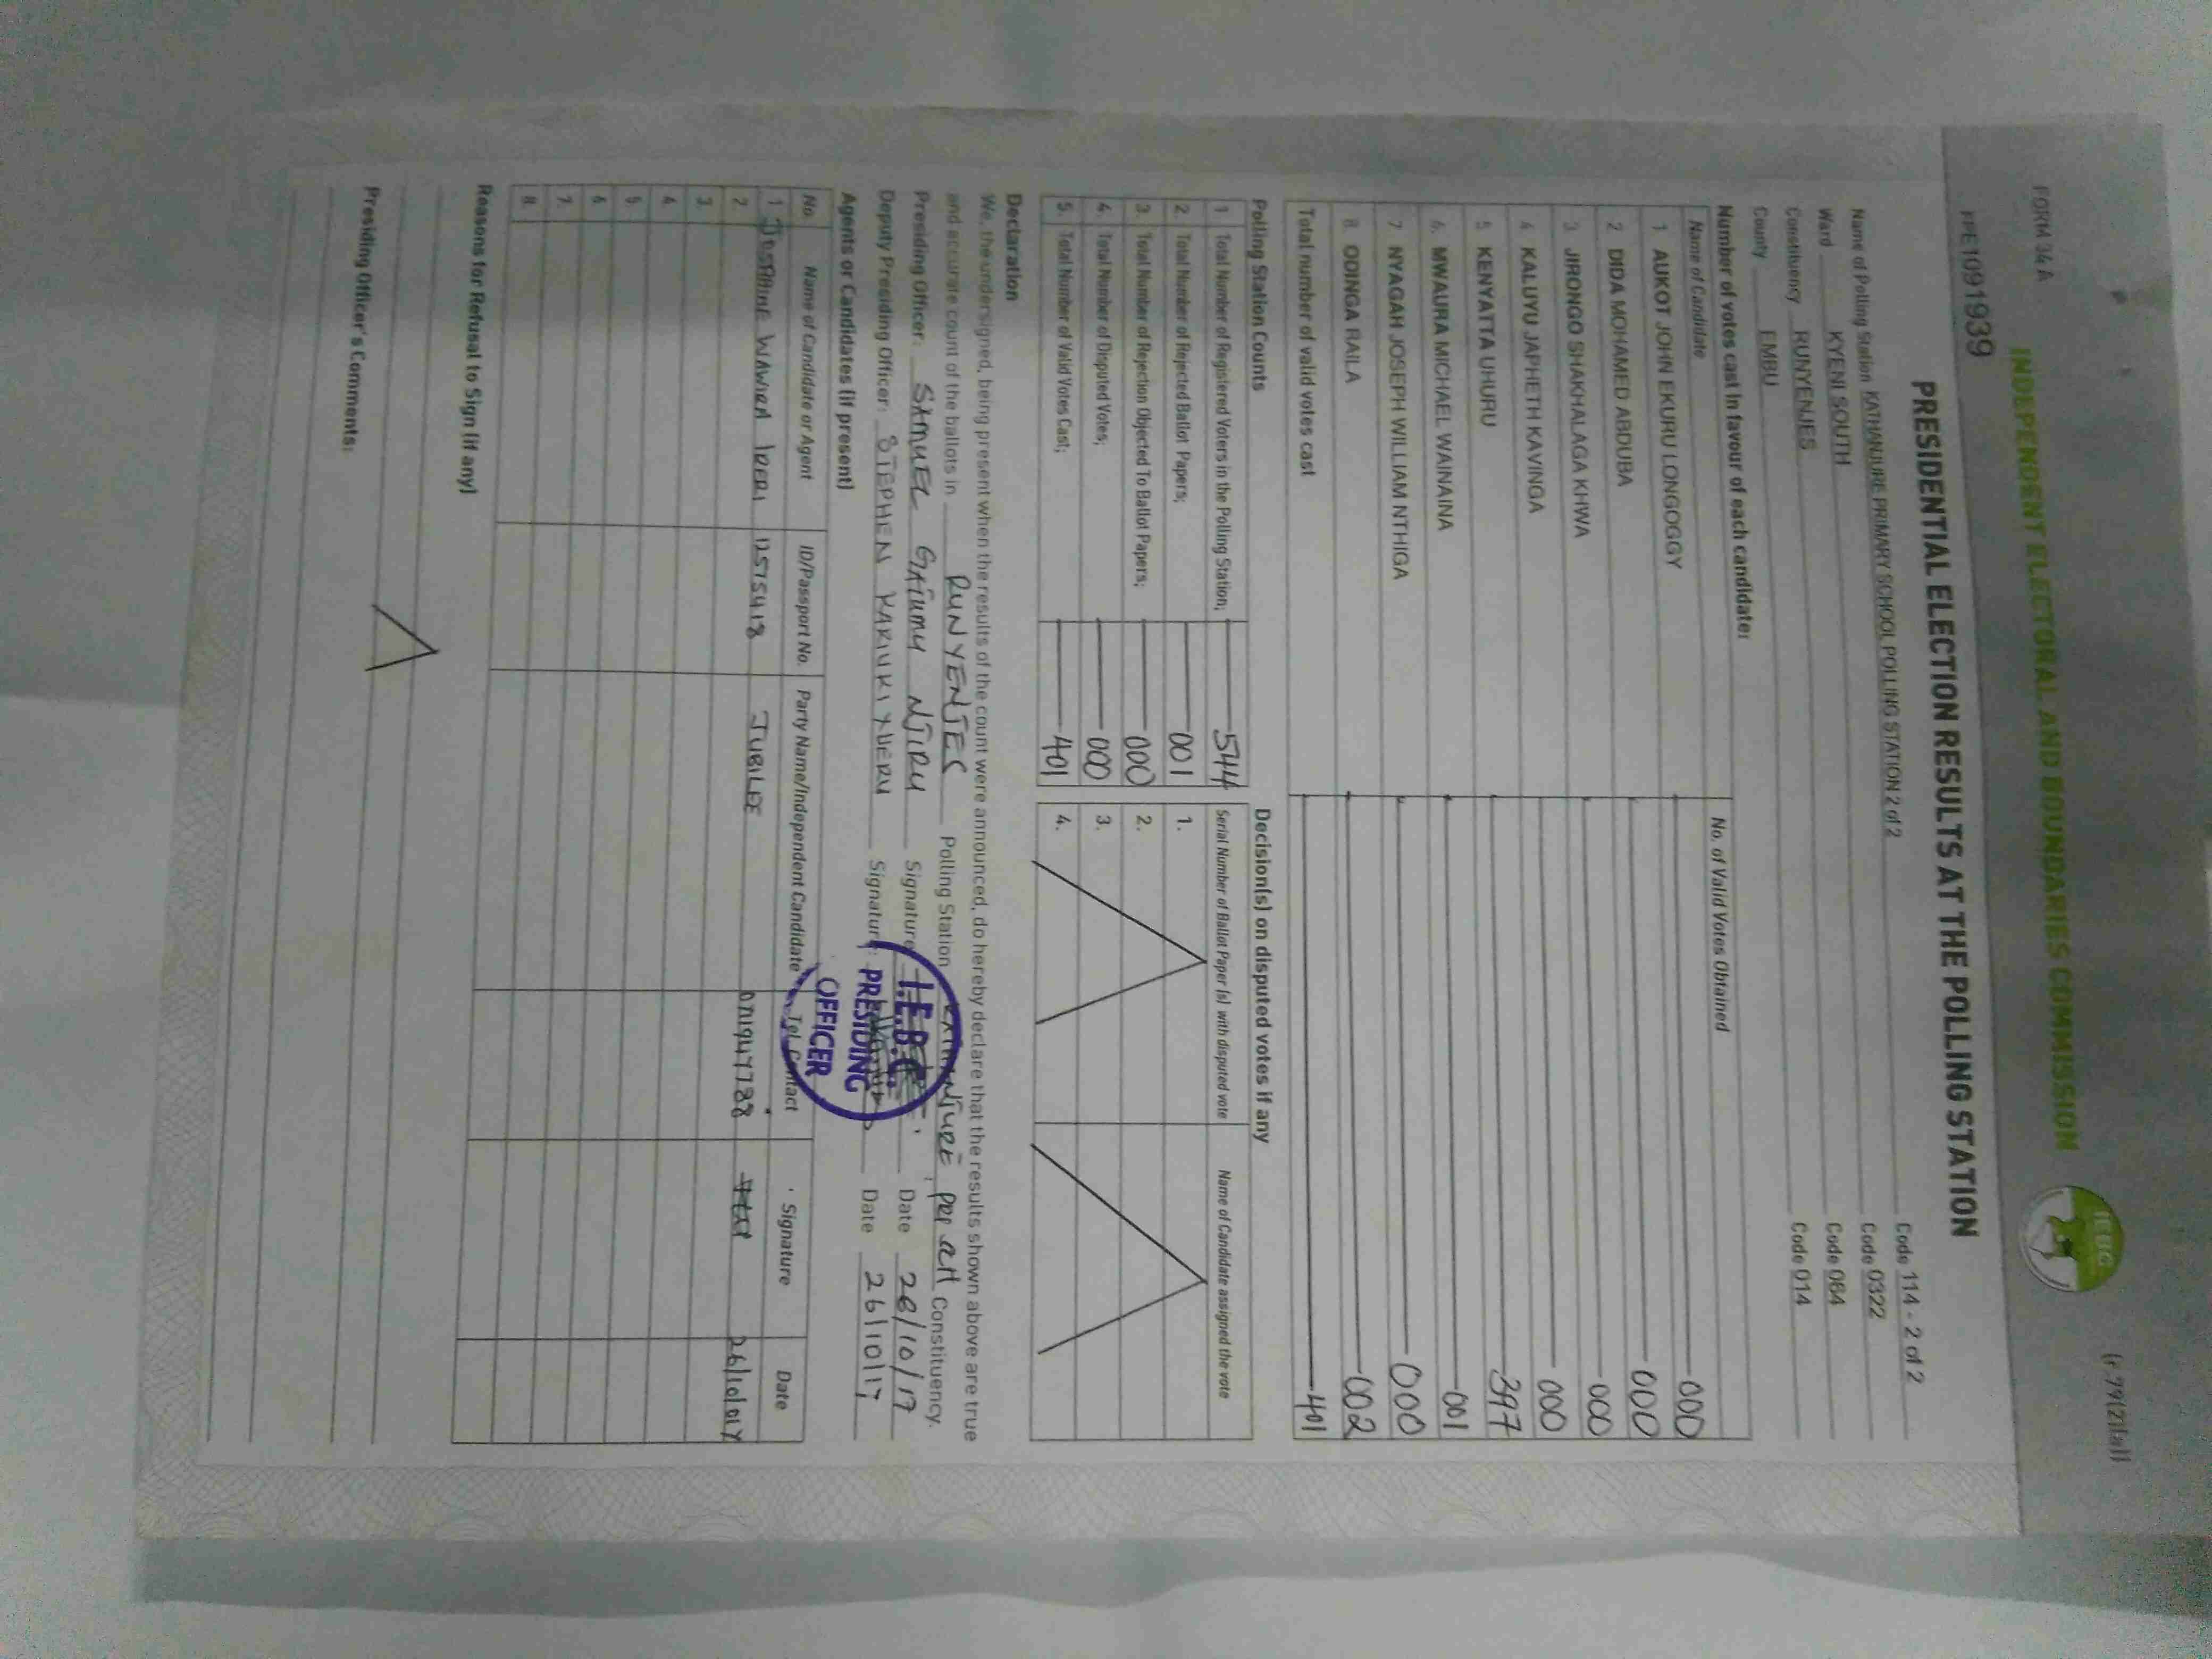 FORM 34 A
(r.79(2)(a))
INDEPENDENT ELECTORAL AND BOUNDARIES COMMISSION
IEBC
PPE1091939
PRESIDENTIAL ELECTION RESULTS AT THE POLLING STATION
Name of Polling Station KATHANJURE PRIMARY SCHOOL POLLING STATION 2 of 2 Code 114 - 2 of 2
Ward KYENI SOUTH Code 0322
Constituency RUNYENJES Code 064
County EMBU Code 014
Number of votes cast in favour of each candidate:
Name of Candidate No. of Valid Votes Obtained
1 AUKOT JOHN EKURU LONGOGGY 000
2 DIDA MOHAMED ABDUBA 000
3 JIRONGO SHAKHALAGA KHWA 000
4 KALUYU JAPHETH KAVINGA 000
5 KENYATTA UHURU 397
6. MWAURA MICHAEL WAINAINA 001
7 NYAGAH JOSEPH WILLIAM NTHIGA 000
8. ODINGA RAILA 002
Total number of valid votes cast 401
Polling Station Counts
1 Total Number of Registered Voters in the Polling Station; 544
2. Total Number of Rejected Ballot Papers; 001
3. Total Number of Rejection Objected To Ballot Papers; 000
4. Total Number of Disputed Votes; 000
5. Total Number of Valid Votes Cast; 401
Decision(s) on disputed votes if any
Serial Number of Ballot Paper (s) with disputed vote Name of Candidate assigned the vote
1.
2.
3.
4.
Declaration
We, the undersigned, being present when the results of the count were announced, do hereby declare that the results shown above are true
and accurate count of the ballots in RUNYENJES Polling Station KATHANJURE Constituency.
Presiding Officer: SAMUEL NJIRU Signature Date 26/10/17
Deputy Presiding Officer: STEPHEN Signature: Date 26/10/17
I.E.B.C.
PRESIDING
OFFICER
Agents or Candidates (if present)
No. Name of Candidate or Agent ID/Passport No. Party Name/Independent Candidate Tel Contact Signature Date
1 JOSPHINE WAWIRA IRERI 12575418 JUBILEE 26/10/017
2.
3.
4.
5.
6.
7.
8.
Reasons for Refusal to Sign (if any)
Presiding Officer's Comments: